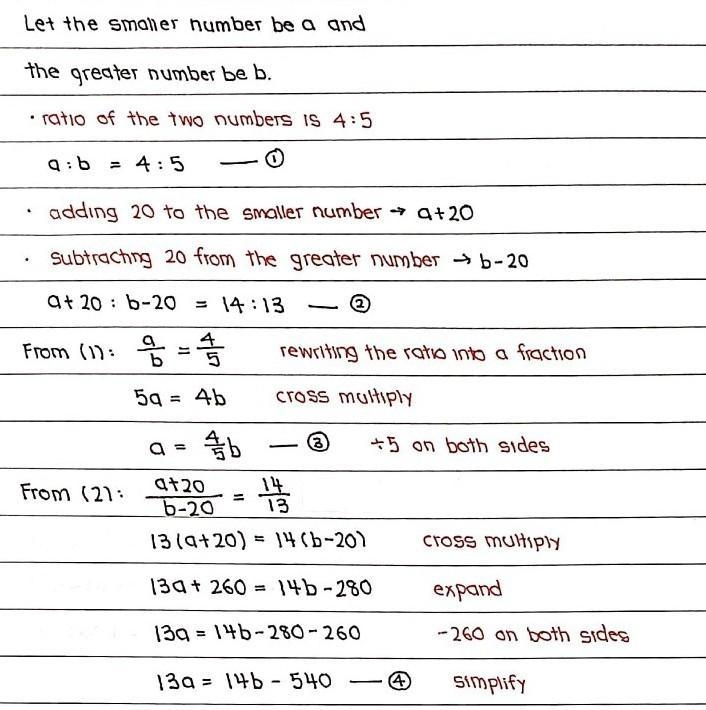 Let the smaller number be a and
the greater number be b.
· ratio of the two numbers is 4:5
a:b = 4:5 — ①
· adding 20 to the smaller number → a+20
· subtracting 20 from the greater number → b-20
a+20 : b-20 = 14:13 — ②
From (1): a/b = 4/5 rewriting the ratio into a fraction
5a = 4b cross multiply
a = 4/5 b — ③ ÷5 on both sides
From (2): a+20/b-20 = 14/13
13(a+20) = 14(b-20) cross multiply
13a + 260 = 14b-280 expand
13a = 14b-280-260 -260 on both sides
13a = 14b - 540 — ④ simplify